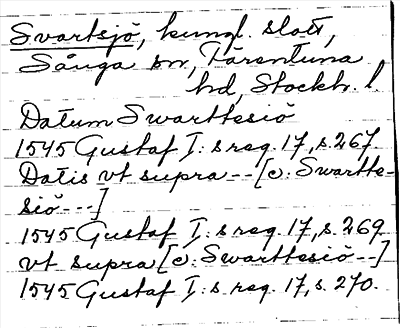 Svartsjö, kungl. slott,
Sånga sn, Färentuna
hd, Stockh. l.
Datum Swarttesiö
1545 Gustaf I: s reg. 17, s. 267.
Datis vt supra -- [ɔ: Swartte-
siö ---]
1545 Gustaf I: s reg. 17, s. 269
vt supra [ɔ: Swarttesiö --]
1545 Gustaf I: s reg. 17, s. 270.